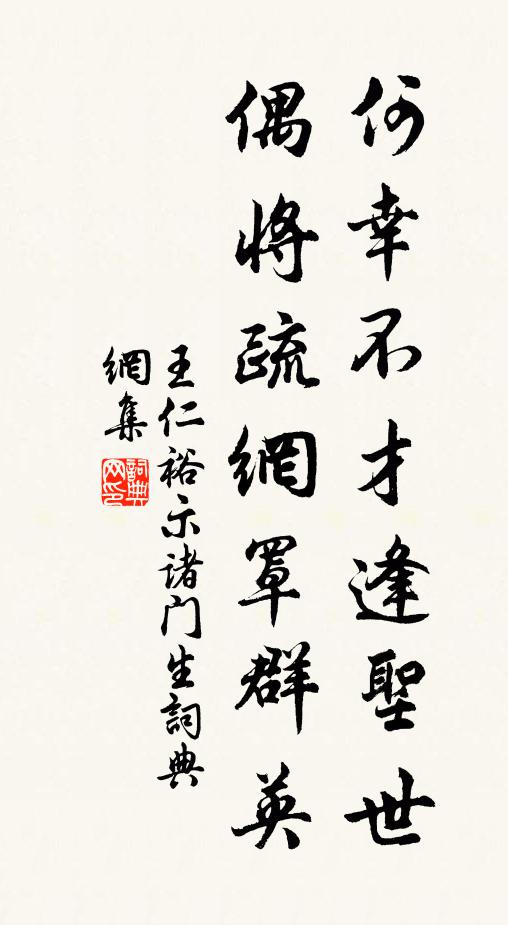 何幸不才逢聖世
偶將疏網罩群英
王仁裕示諸門生詞典
網集
詞典
网印